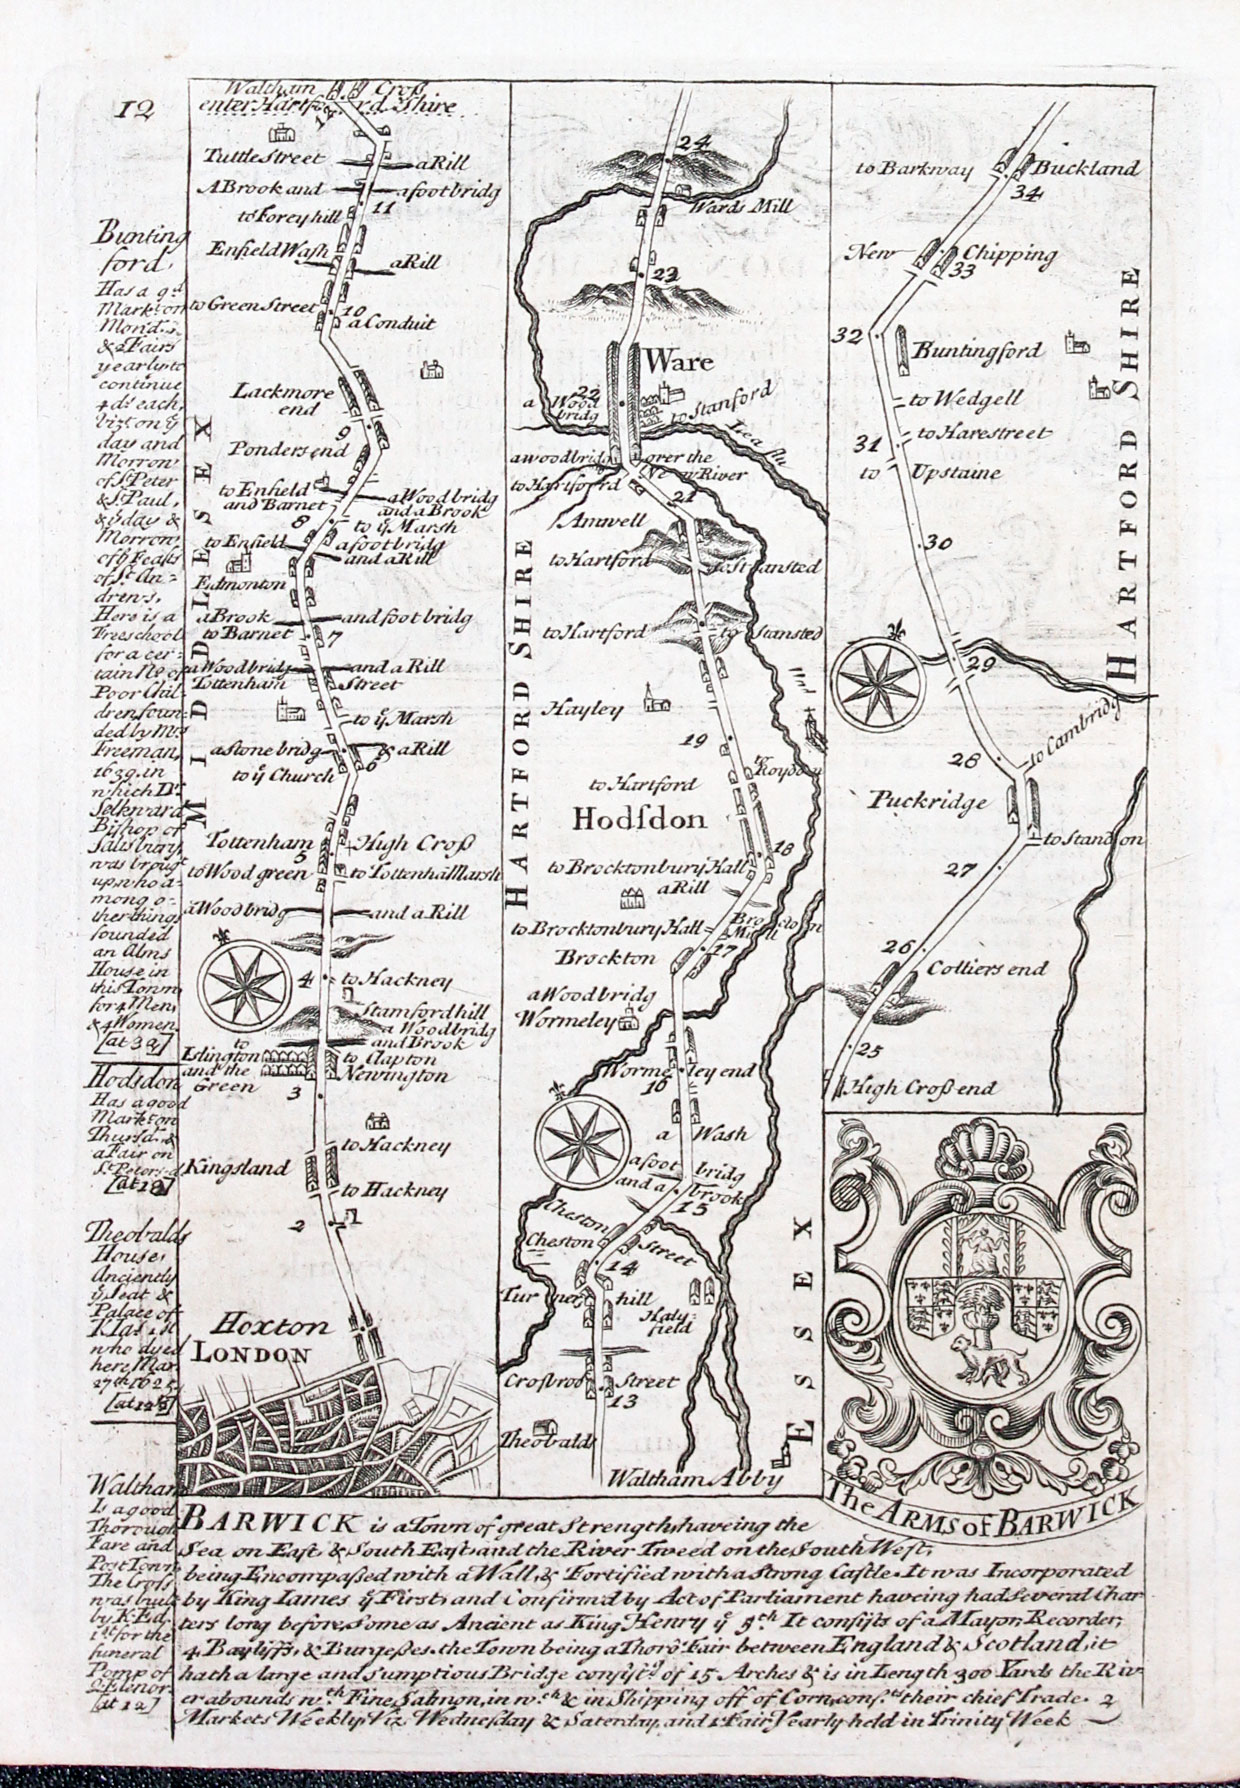 12
Bunting
ford,
Has a gd
Markt on
Monds.
& 2 Fairs
yearly to
continue
4 ds. each,
vizt on ye
day and
Morrow
of St Peter
& St Paul,
& ye day &
Morrow
of ye Feasts
of St An=
drews.
Here is a
Freeschool
for a cer=
tain No. of
Poor Chil=
dren foun=
ded by Mrs
Freeman,
1639. in
which Dr.
Selkward
Bishop of
Salisbury,
was brougt
up, who a=
mong o=
ther things
founded
an Alms
House in
this Town
for 4 Men,
& 4 Women
[at 32]
Hodsdon
Has a good
Markt on
Thursd. &
a Fair on
St Peters d
[at 18]
Theobalds
House,
Anciently
ye Seat &
Palace of
K. Ias. 1st
who dyed
here, Mar.
27th 1625
Waltham
Is a good
Thorough
Fare and
Post Town
The Cross
was built
by K. Ed.
1st for the
funeral
Pomp of
Q. Elenor.
[at 12]
Waltham Cross
enter Hartford Shire
12
Tuttle Street a Rill
A Brook and a foot bridg
to Forey hill 11
Enfield Wash a Rill
to Green Street 10
a Conduit
Lackmore
end
9
Ponders end
to Enfield a Wood bridg
and Barnet and a Brook
8 to ye Marsh
to Enfield a foot bridg
and a Rill
Edmonton
a Brook and foot bridg
to Barnet 7
a Wood bridg and a Rill
Tottenham Street
to ye Marsh
a stone bridg & a Rill
to ye Church 6
MIDDLESEX
Tottenham High Cross
5
to Wood green to Tottenham Marsh
a Wood bridg and a Rill
4 to Hackney
Stamford hill
a Wood bridg
and Brook
to Islington to Clapton
and the Newington
Green
3
to Hackney
Kingsland
to Hackney
2
Hoxton
LONDON
24
Wards Mill
23
Ware
22
a Wood
bridg
to Stanford
Lea flu
a wood bridg over the
New River
to Hartford
21
Amwell
to Hartford to Stansted
to Hartford to Stansted
Hayley
19
to Roydon
to Hartford
Hodsdon
18
to Brocktonbury Hall
a Rill
to Brocktonbury Hall
17
Brockton
a Wood bridg
Wormeley
Wormeley end
16
a Wash
a foot bridg
and a brook
15
Cheston Street
Cheston
14
Turners hill
Haly
field
Crosbrook Street
13
Theobalds
Waltham Abby
HARTFORD SHIRE
ESSEX
to Barkway Buckland
34
New Chipping
33
32
Buntingford
to Wedgell
31 to Harestreet
to Upstaine
30
29
to Cambridg
28
Puckridge
to Standon
27
26
Colliers end
25
High Cross end
HARTFORD SHIRE
The ARMS of BARWICK
BARWICK is a Town of great Strength, haveing the
Sea on East, & South East, and the River Tweed on the South West,
being Encompassed with a Wall, & Fortified with a Strong Castle. It was Incorporated
by King Iames ye First, and Confirm'd by Act of Parliament haveing had several Char
ters long before, Some as Ancient as King Henry ye 5th It consists of a Mayor, Recorder,
4 Bayliffs, & Burgesses. the Town being a Thoro' Fair between England & Scotland, it
hath a large and Sumptious Bridge consistg of 15 Arches & is in Length 300 Yards the Riv
er abounds wth Fine Salmon, in wch & in Shipping off of Corn, consts their chief Trade. 2
Markets Weekly Viz Wednesday & Saterday, and 1 Fair Yearly held in Trinity Week